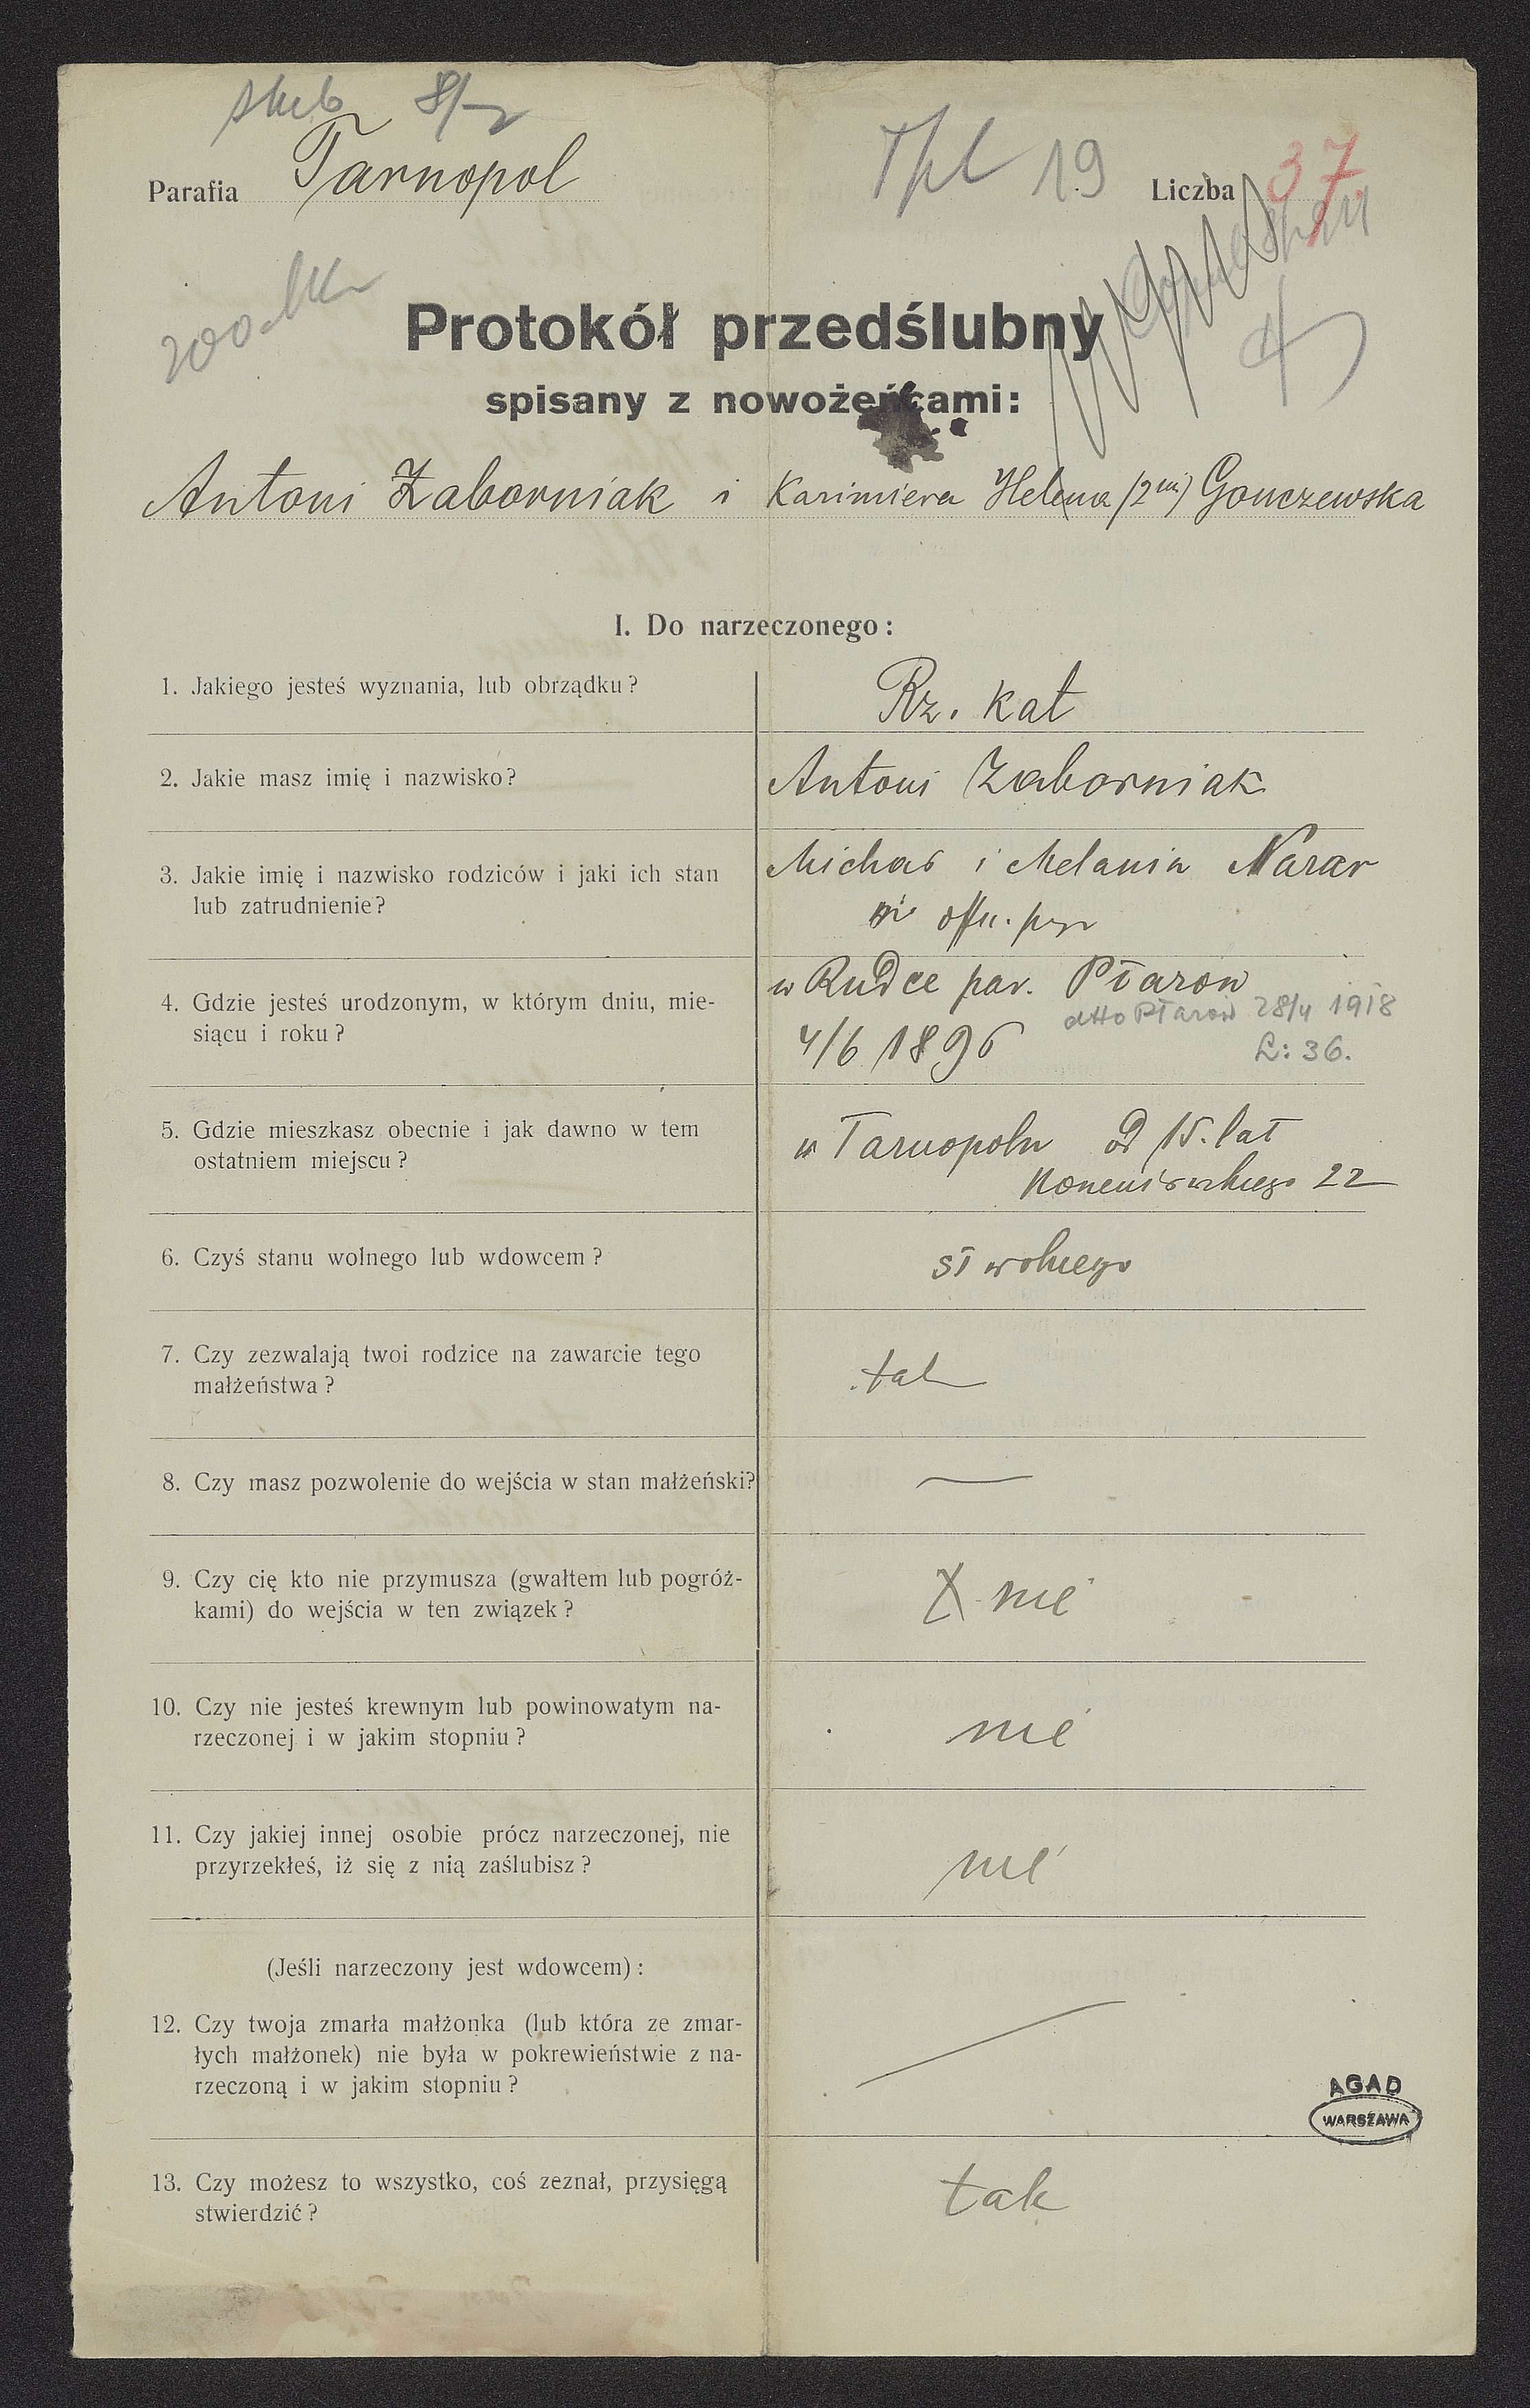 Parafia Tarnopol
Tpl 19 Liczba 37.
Protokół przedślubny
spisany z nowożeńcami:
Antoni Zaborniak i Kazimiera Helena (2im) Gonczewska
I. Do narzeczonego:
1. Jakiego jesteś wyznania, lub obrządku?
Rz. kat
2. Jakie masz imię i nazwisko?
Antoni Zaborniak
3. Jakie imię i nazwisko rodziców i jaki ich stan
lub zatrudnienie?
Michał i Melania Nazar
4. Gdzie jesteś urodzonym, w którym dniu, mie-
siącu i roku?
w Rudce par. Płazów
dtto Płazów 28/4 1918
4/6 1896
L: 36.
5. Gdzie mieszkasz obecnie i jak dawno w tem
ostatniem miejscu?
w Tarnopolu od 15. lat
22
6. Czyś stanu wolnego lub wdowcem?
st wolnego
7. Czy zezwalają twoi rodzice na zawarcie tego
małżeństwa?
tak
8. Czy masz pozwolenie do wejścia w stan małżeński?
—
9. Czy cię kto nie przymusza (gwałtem lub pogróż-
kami) do wejścia w ten związek?
X nie
10. Czy nie jesteś krewnym lub powinowatym na-
rzeczonej i w jakim stopniu?
nie
11. Czy jakiej innej osobie prócz narzeczonej, nie
przyrzekłeś, iż się z nią zaślubisz?
nie
(Jeśli narzeczony jest wdowcem):
12. Czy twoja zmarła małżonka (lub która ze zmar-
łych małżonek) nie była w pokrewieństwie z na-
rzeczoną i w jakim stopniu?
AGAD
WARSZAWA
13. Czy możesz to wszystko, coś zeznał, przysięgą
stwierdzić?
tak